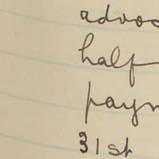 advoc
half
payn
31st